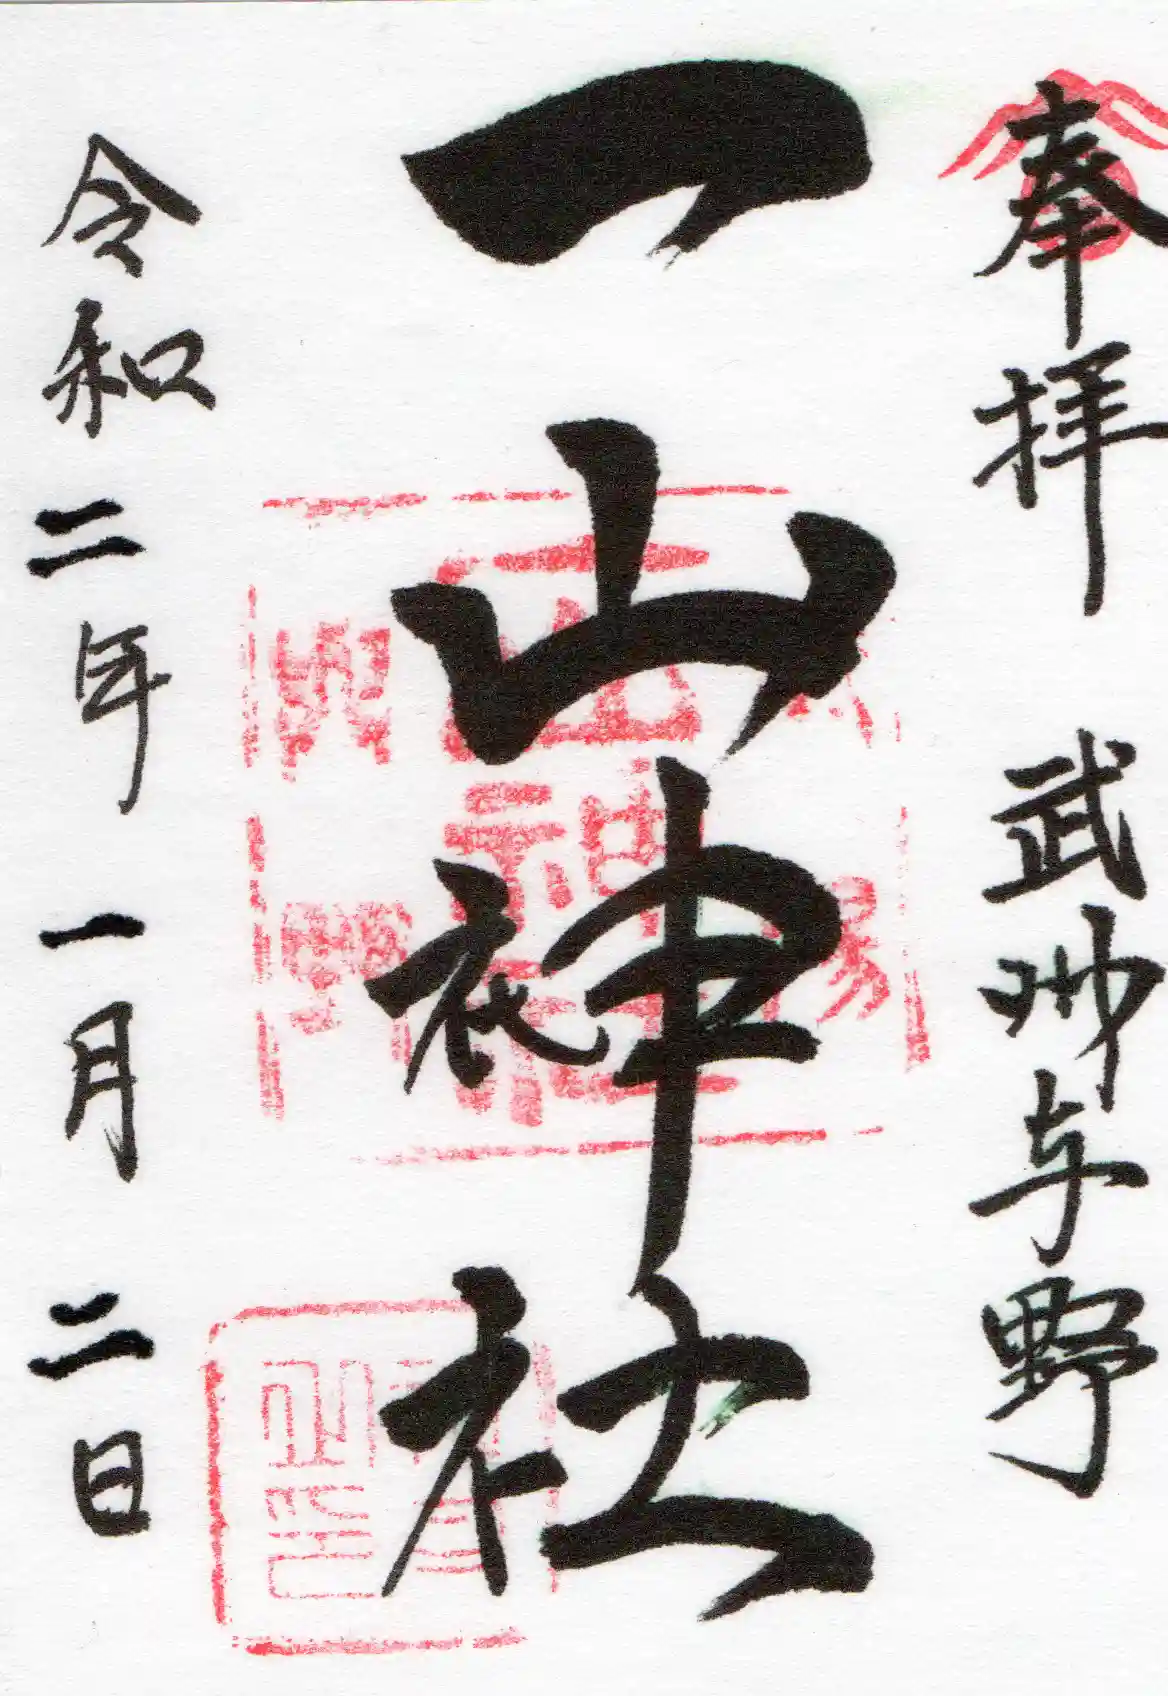 奉拝 武州与野
一山神社
令和二年一月二日